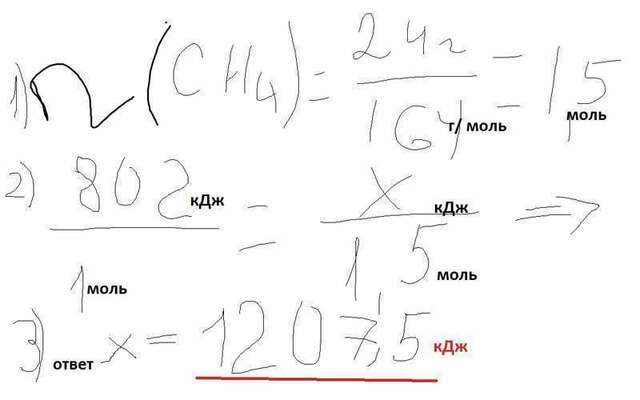 1) n (CH4) = 24г / 16 г/моль = 1,5 моль
2) 802 кДж / 1 моль = x кДж / 1,5 моль =>
3) ответ x = 1207,5 кДж